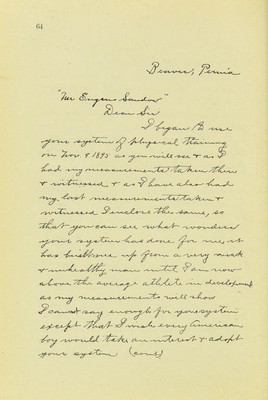 64
Beaver, Penna
"Mr Eugen Sandow"
Dear Sir
I began to use
your system of physical training
on Nov. 9 1895 as you will see & as I
had my measurements taken then
& witnessed & as I have also had
my last measurements taken &
witnessed I enclose the same, so
that you can see what wonders
your system has done for me, it
has built me up from a very weak
& unhealthy man until I am now
above the average athlete in development
as my measurements will show
I cannot say enough for your system
except that I wish every American
boy would take an interest & adopt
your system (cont)